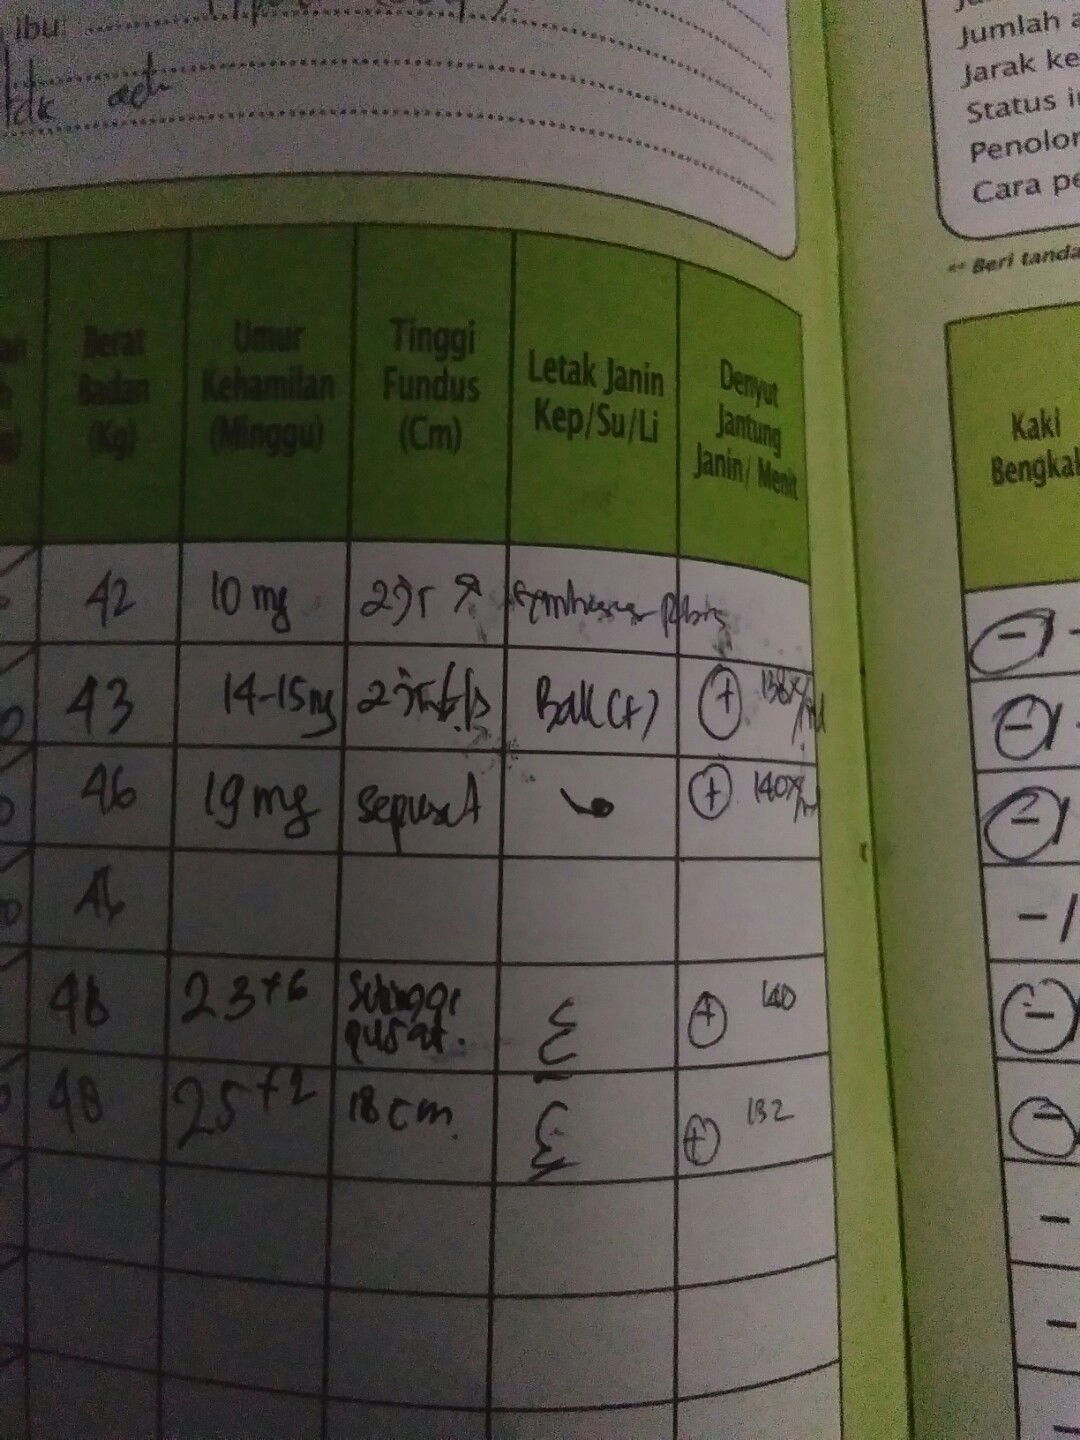 ibu:
tdk ada
Jumlah
Jarak ke
Status
Penolon
Cara pe
** Beri tanda
Berat Badan (Kg)
Umur Kehamilan (Minggu)
Tinggi Fundus (Cm)
Letak Janin Kep/Su/Li
Denyut Jantung Janin/ Menit
Kaki Bengkak
42 10 mg -
43 14-15 mg Ball (+) + 138x/ -
46 19 mg sepusat + 140x/ -
46 -
48 23+6 Setinggi pusat. + 140 -
48 25+2 18 cm. + 132 -
-
-